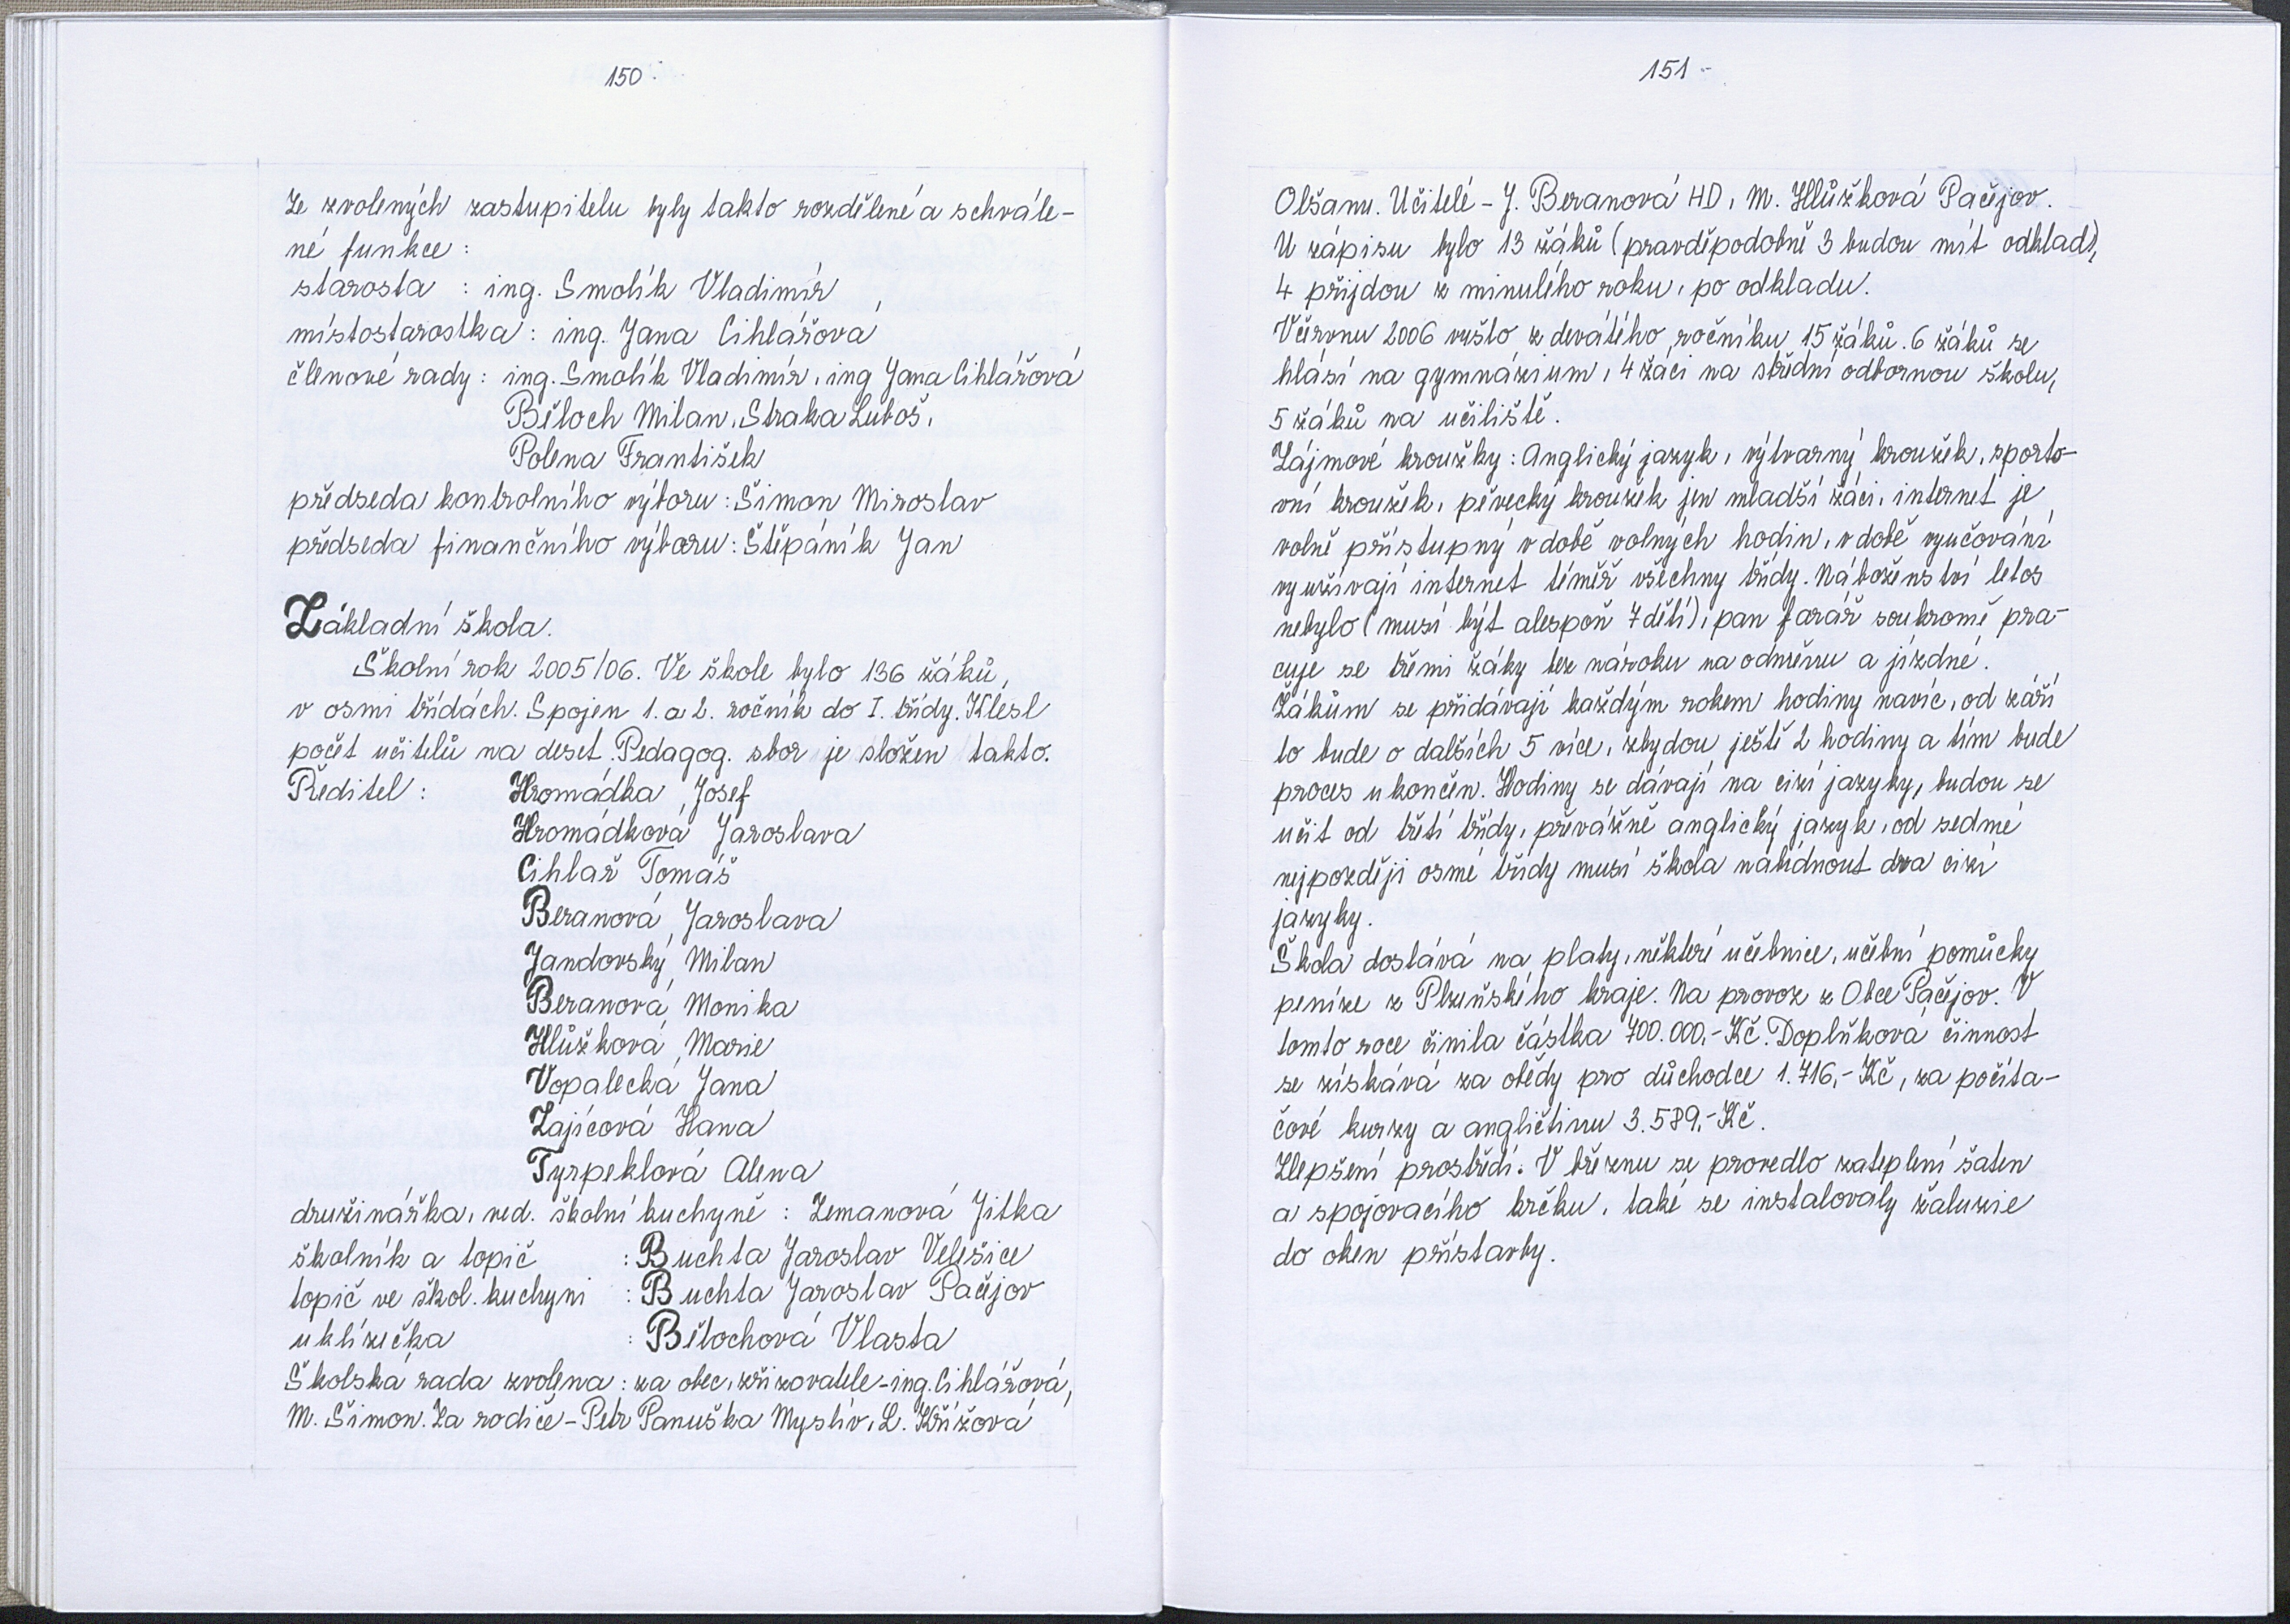 150
Ze zvolených zastupitelu byly takto rozdělené a schvále-
né funkce:
starosta : ing. Smolík Vladimír,
místostarostka: ing. Jana Cihlářová
členové rady: ing. Smolík Vladimír, ing Jana Cihlářová
Běloch Milan, Straka Luboš,
Polena František
předseda kontrolního výboru: Šimon Miroslav
předseda finančního výboru: Štěpáník Jan
Základní škola.
Školní rok 2005/06. Ve škole bylo 136 žáků,
v osmi třídách. Spojen 1. a 2. ročník do I. třídy. Klesl
počet učitelů na deset. Pedagog. sbor je složen takto.
Ředitel: Hromádka Josef
Hromádková Jaroslava
Cihlař Tomáš
Beranová Jaroslava
Jandovský Milan
Beranová Monika
Hlůžková Marie
Vopalecká Jana
Zajícová Hana
Tyrpeklová Alena
družinářka, ved. školní kuchyně : Zemanová Jitka
školník a topič : Buchta Jaroslav Velešice
topič ve škol. kuchyni : Buchta Jaroslav Pačejov
uklízečka : Bělochová Vlasta
Školská rada zvolena: za obec, zřizovatele - ing. Cihlářová,
M. Šimon. Za rodiče - Petr Panuška Myslív, L. Křížová
151 -
Olšany. Učitelé - J. Beranová HD, M. Hlůžková Pačejov.
U zápisu bylo 13 žáků (pravděpodobně 3 budou mít odklad),
4 přijdou z minulého roku, po odkladu.
V červnu 2006 vyšlo z devátého ročníku 15 žáků. 6 žáků se
hlásí na gymnázium, 4 žáci na střední odbornou školu,
5 žáků na učiliště.
Zájmové kroužky: Anglický jazyk, výtvarný kroužek, sporto-
vní kroužek, pěvecký kroužek jen mladší žáci, internet je
volně přístupný v době volných hodin, v době vyučování
využívají internet téměř všechny třídy. Náboženství letos
nebylo (musí být alespoň 7 dětí), pan farář soukromě pra-
cuje se třemi žáky bez nároku na odměnu a jízdné.
Žákům se přidávají každým rokem hodiny navíc, od září
to bude o dalších 5 více, zbydou ještě 2 hodiny a tím bude
proces ukončen. Hodiny se dávají na cizí jazyky, budou se
učit od třetí třídy, převážně anglický jazyk, od sedmé
nejpozději osmé třídy musí škola nabídnout dva cizí
jazyky.
Škola dostává na platy, některé učebnice, učební pomůcky
peníze z Plzeňského kraje. Na provoz z Obce Pačejov. V
tomto roce činila částka 700.000,- Kč. Doplňková činnost
se získává za obědy pro důchodce 1.716,- Kč, za počíta-
čové kurzy a angličtinu 3.589,- Kč.
Zlepšení prostředí. V březnu se provedlo zateplení šaten
a spojovacího krčku, také se instalovaly žaluzie
do oken přístavby.